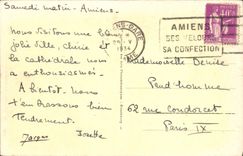 Samedi matin - Amiens.
Nous visitons une
jolie ville, chérie et
la cathédrale nous
a enthousiasmés.
A bientôt. Nous
t'embrassons bien
tendrement.
Jacques
AMIENS
SES VELOURS
SA CONFECTION
Mademoiselle Denise
Prud'homme
62 rue Condorcet
Paris IX